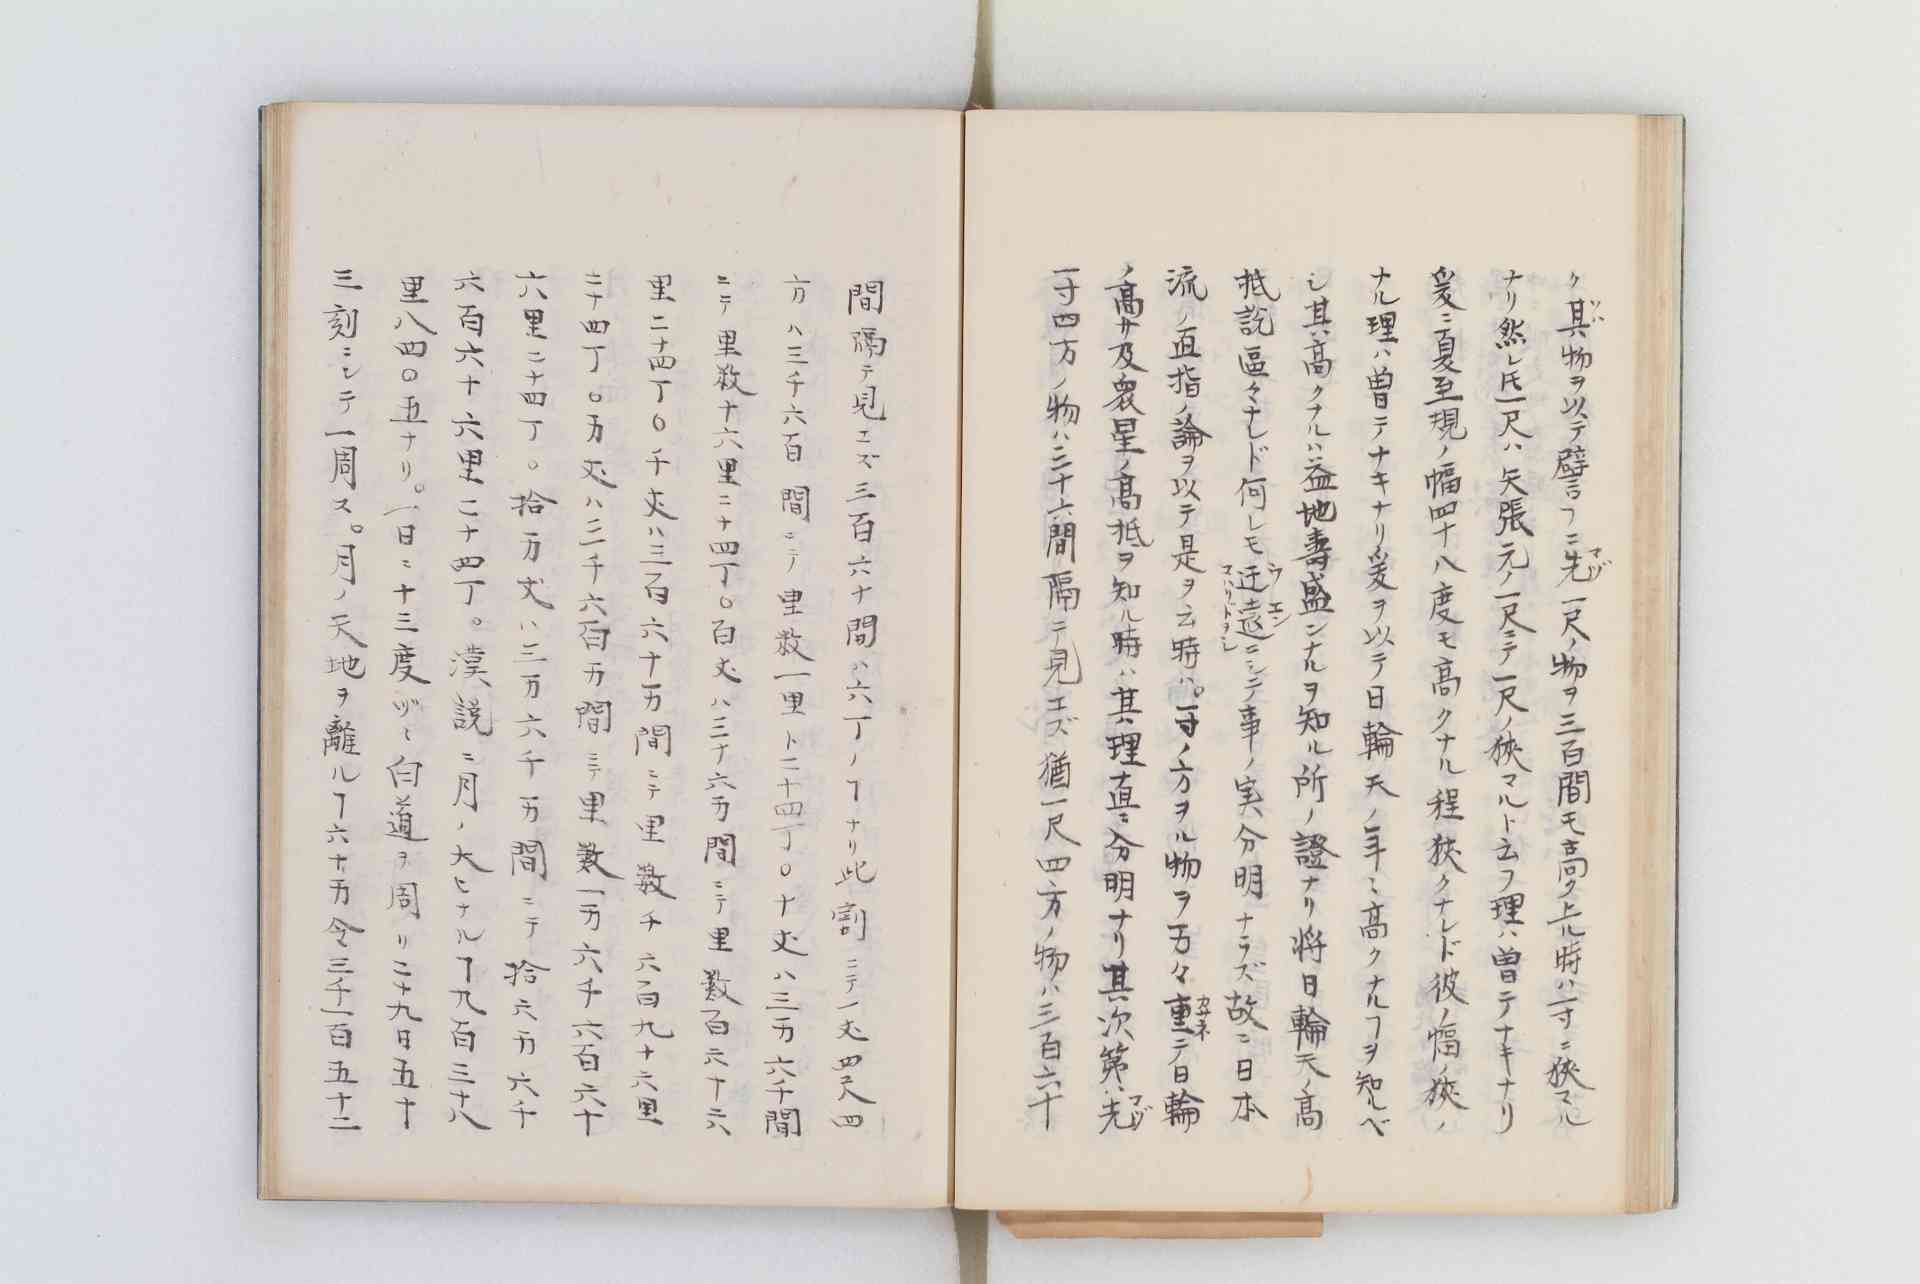 ク其物ヲ以テ譬フニ先一尺ノ物ヲ三百間モ高ク上ル時ハ一寸ニ狹マル
ナリ然レ𪜈一尺ハ矢張元ノ一尺ニテ一尺ノ狹マルト云フ理ハ曽テナキナリ
爰ニ夏至規ノ幅四十八度モ高クナル程狹クナレド彼ノ幅ノ狹ノ
ナル理ハ曽テナキナリ爰ヲ以テ日輪天ノ年ミ高クナルヿヲ知ルベ
シ其高クナルハ益地壽盛ンナルヲ知ル所ノ證ナリ将日輪天ノ高
抵説區々ナレド何レモ迂遠ニシテ事ノ実分明ナラズ故ニ日本
流ノ直指ノ論ヲ以テ是ヲ云時ハ。一寸ノ方ヲル物ヲ万々重テ日輪
ノ高サ及衆星ノ高抵ヲ知ル時ハ其理真ニ分明ナリ其次第ハ先
一寸四方ノ物ハ三十六間隔テ見エズ猶一尺四方ノ物ハ三百六十
間隔テ見エズ三百六十間ハ六丁ノヿナリ此割ニテ一丈四尺四
方ハ三千六百間ニテ里数一里ト二十四丁〇十丈ハ三万六千間
ニテ里数十六里二十四丁〇百丈ハ三十六万間ニテ里数百六十六
里二十四丁〇千丈ハ三百六十万間ニテ里数千六百九十六里
二十四丁〇万丈ハ三千六百万間ニテ里数一万六千六百六十
六里二十四丁。拾万丈ハ三万六千万間ニテ拾六万六千
六百六十六里二十四丁。漢説ニ月ノ大ヒナルヿ九百三十八
里八四〇五ナリ。一日ニ十三度ヅヽ白道ヲ周リ二十九日五十
三刻ニシテ一周ス。月ノ天地ヲ離ルヿ六十万令三千一百五十二